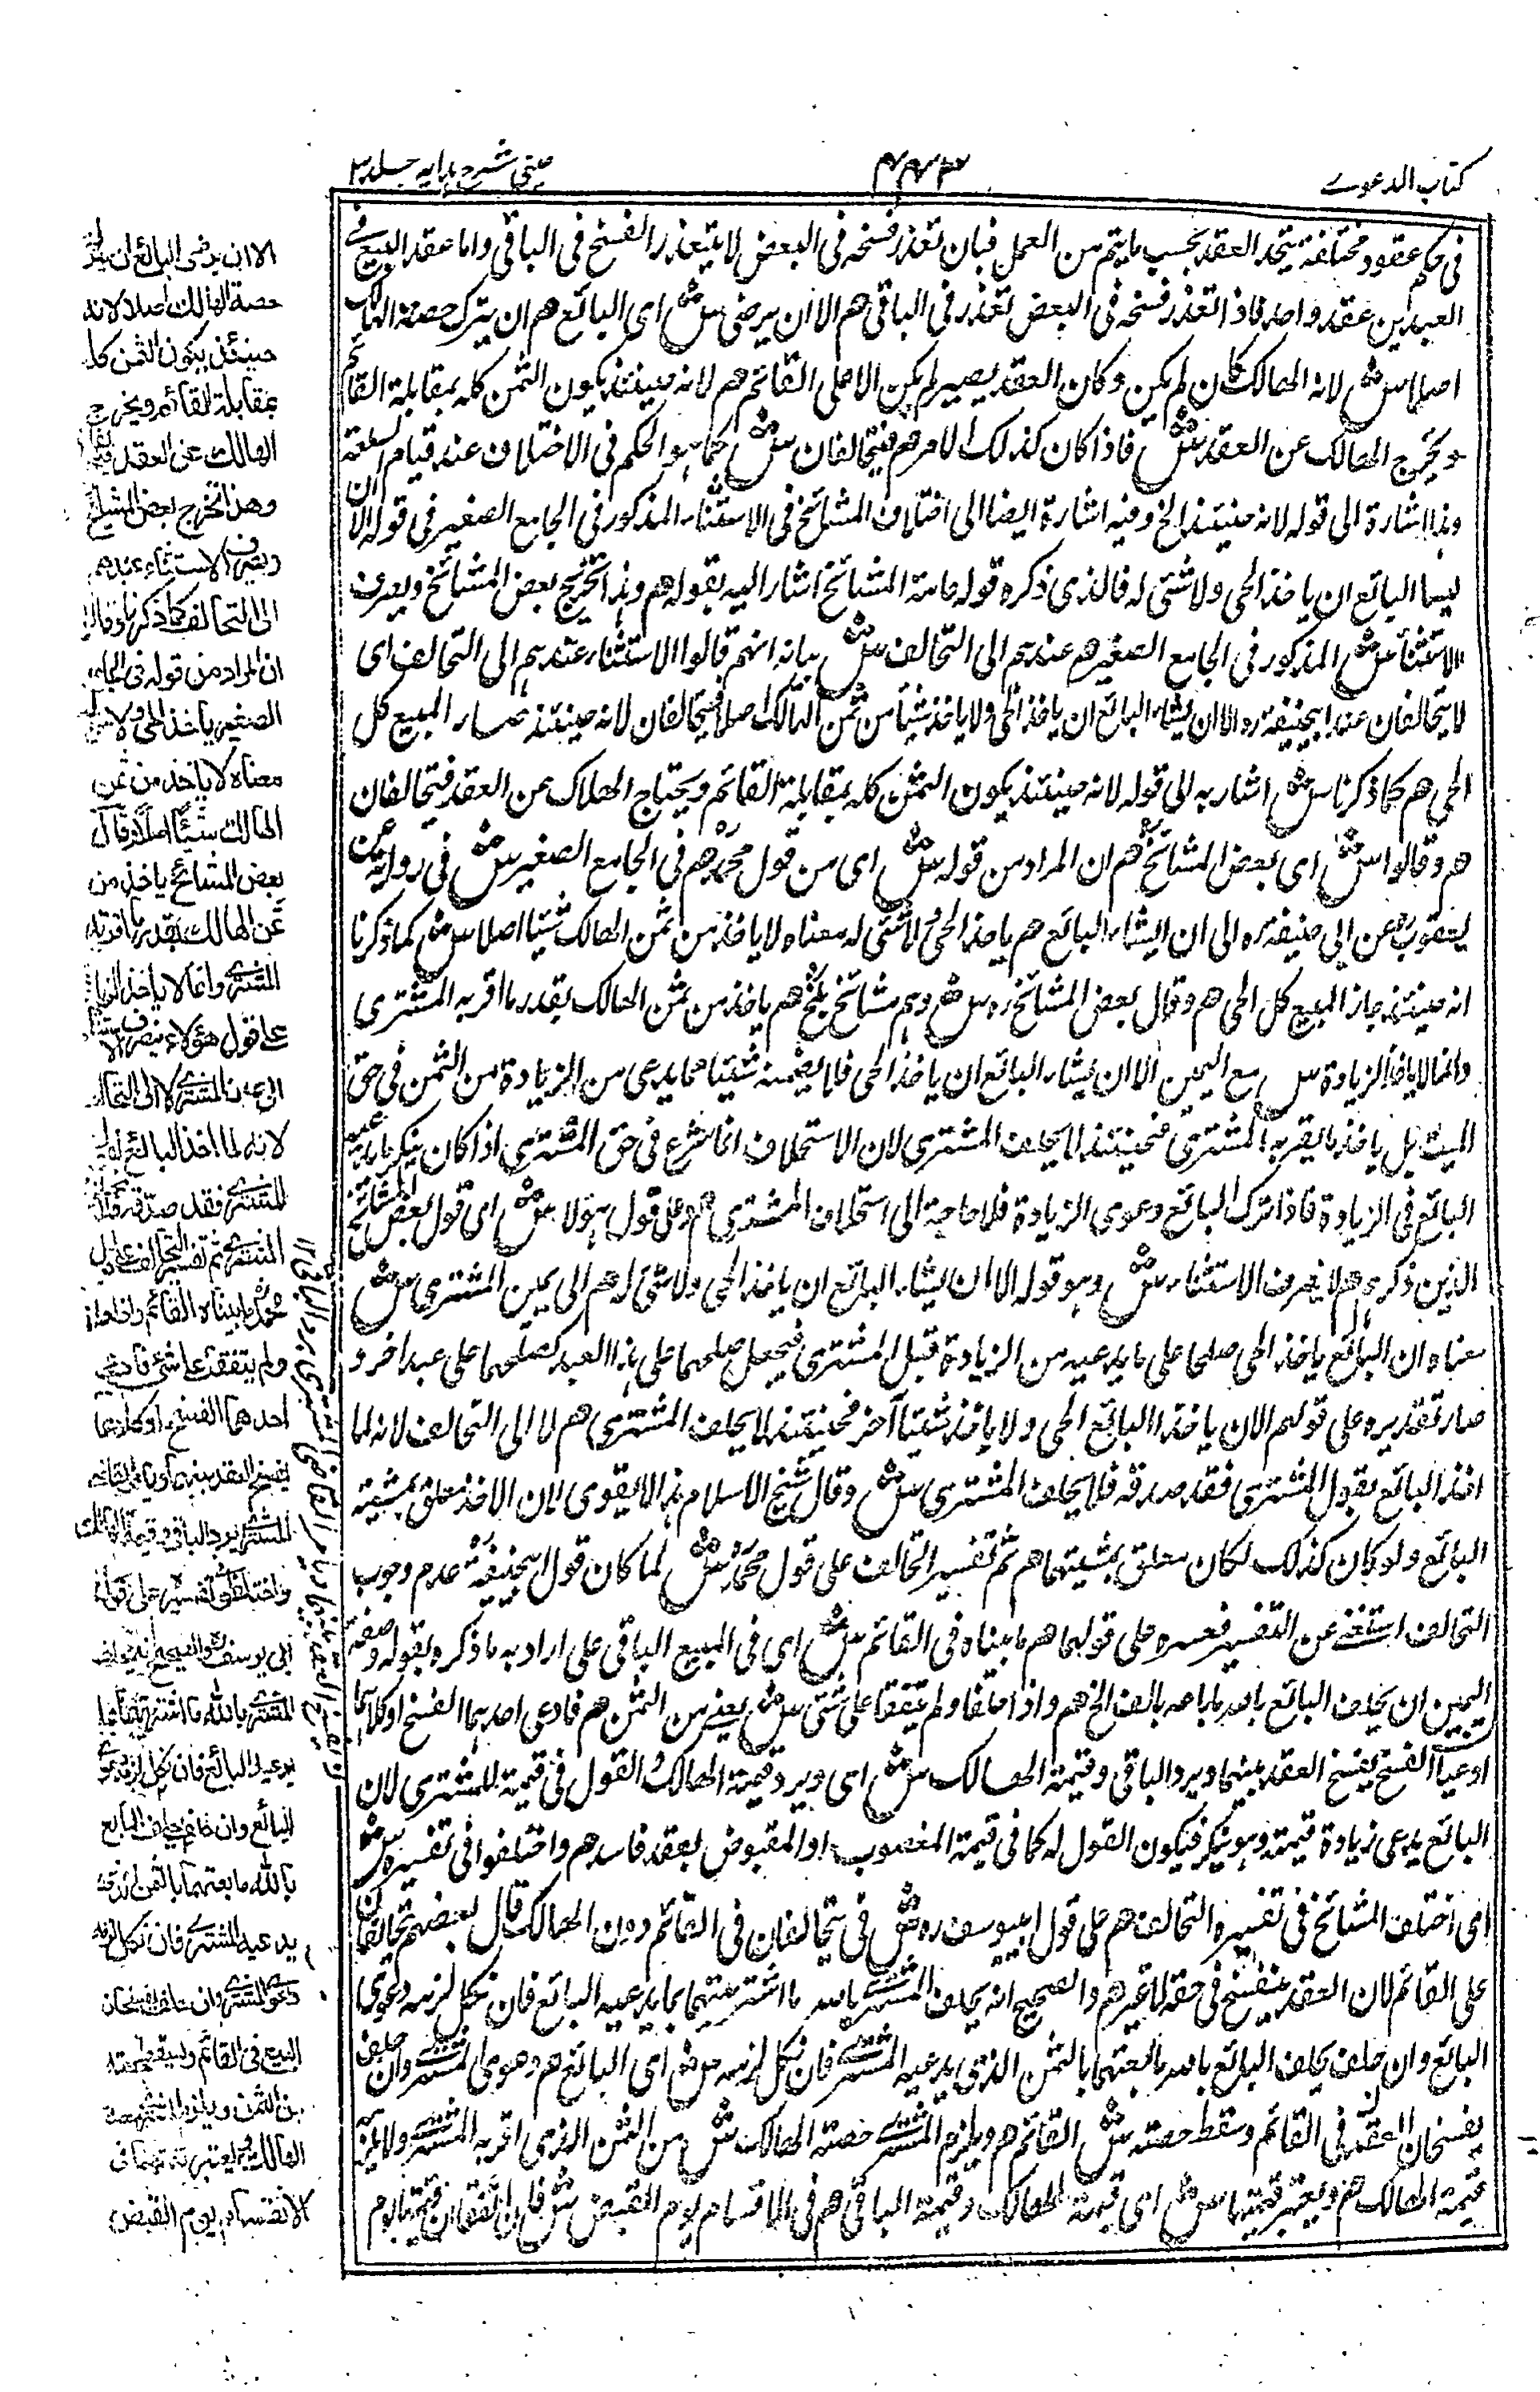 كتاب الدعوے
عينی شرح ہدايہ جلد ۳
فی حكم عقود مختلفة يتجدد العقد بحسب ما يتم من العمل فبان تعذر فسخه فی البعض لا يتعذر الفسخ فی الباقی واما عقد البيع فی
العبدين عقد واحد فاذا تعذر فسخه فی البعض تعذر فی الباقی هم الا ان يرضى ش ای البائع هم ان يترك حصة الهالك
اصلا ش لانه الهالك كان لم يكن وكان العقد يصير لم يكن الا على القائم هم لانه حينئذ يكون الثمن كله بمقابلة القائم
ويخرج الهالك عن العقد ش فاذا كان كذلك الامر هم فيتحالفان ش كما هو الحكم فی الاختلاف عند قيام السلعة
وهذا اشارة الى قوله لانه حينئذ الخ وفيه اشارة ايضا الى اختلاف المشائخ فی الاستثناء المذكور فی الجامع الصغير فی قوله الا ان
يشاء البائع ان ياخذ الحی ولا شئی له فالذی ذكره قوله عامة المشائخ اشار اليه بقوله هم وهذا تخريج بعض المشائخ ويصرف
الاستثناء ش المذكور فی الجامع الصغير هم عندهم الى التحالف ش بيانه انهم قالوا الاستثناء عندهم الى التحالف ای
لا يتحالفان عند ابيحنيفة ره الا ان يشاء البائع ان ياخذ الحی ولا ياخذ شيئا من ثمن الهالك اصلا فيتحالفان لانه حينئذ صار المبيع كل
الحی هم كما ذكرنا ش اشار به الى قوله لانه حينئذ يكون الثمن كله بمقابلة القائم ويحتاج الهلاك عن العقد فيتحالفان
هم وقالوا ش ای بعض المشائخ هم ان المراد من قوله ش ای من قول محمد هم فی الجامع الصغير ش فی رواية عن
يعقوب عن ابی حنيفة ره الى ان يشاء البائع هم ياخذ الحی ولا شئی له معناه لا ياخذ من ثمن الهالك شيئا اصلا ش كما ذكرنا
انه حينئذ جاز المبيع كل الحی هم وقال بعض المشائخ ره ش وهم مشائخ بلخ هم ياخذ من ثمن الهالك بقدر ما اقر به المشتری
وانما لا ياخذ الزيادة ش مع اليمين الا ان يشاء البائع ان ياخذ الحی فلا يضمنه شيئا مما يدعی من الزيادة من الثمن فی حق
الميت بل ياخذ ما يقر به المشتری فحينئذ لا يحلف المشتری لان الاستحلاف انما شرع فی حق المشتری اذا كان ينكر ما يدعيه
البائع فی الزيادة فاذا ترك البائع دعوى الزيادة فلا حاجة الى استحلاف المشتری هم وعلى قول هؤلاء ش ای قول بعض المشائخ
الذين ذكرهم هم لا يصرف الاستثناء ش وهو قوله الا ان يشاء البائع ان ياخذ الحی ولا شئی له هم الى يمين المشتری ش
معناه ان البائع ياخذ الحی صلحا على ما يدعيه من الزيادة قبل المشتری فيجعل صلحهما على هذا العبد كصلحهما على عبد اخر و
صار تقديره على قولهم الا ان ياخذ البائع الحی ولا ياخذ شيئا آخر فحينئذ لا يحلف المشتری هم لا الى التحالف لانه لما
اخذ البائع بقول المشتری فقد صدقه فلا يحلف المشتری ش وقال شيخ الاسلام هذا لا يقوى لان الاخذ معلق بمشية
البائع ولو كان كذلك لكان معلق بمشيتهما هم ثم تفسير التحالف على قول محمد ش لما كان قول ابيحنيفة عدم وجوب
التحالف استغنے عن التفسير ففسره على قولهما هم ما بيناه فی القائم ش ای فی المبيع الباقی على اراد به ما ذكره بقوله وصفة
اليمين ان يحلف البائع بالله ما باعه بالف الخ هم واذا حلفا ولم يتفقا على شئی ش يعنے من الثمن هم فادعى احدهما الفسخ او كلاهما
ادعيا الفسخ يفسخ العقد بينهما ويرد الباقی وقيمة الهالك ش ای ويرد قيمة الهالك والقول فی قيمة للمشتری لان
البائع يدعی زيادة قيمته وهو ينكر فيكون القول له كما فی قيمة المغصوب او المقبوض بعقد فاسد هم واختلفوا فی تفسيره ش
ای اختلف المشائخ فی تفسيره والتحالف هم على قول ابيوسف ره ش فی يتحالفان فی القائم دون الهالك قال بعضهم يتحالفان
على القائم لان العقد ينفسخ فی حقه لا غير هم والصحيح انه يحلف المشترے بالله ما اشتريتهما بما يدعيه البائع فان نكل لزمه دعوى
البائع وان حلف يحلف البائع بالله ما بعتهما بالثمن الذی يدعيه المشترے فان نكل لزمه ش ای البائع هم دعوى المشترے وان حلف
يفسخان العقد فی القائم وسقط حصته ش القائم هم ويلزم المشترے حصة الهالك ش من الثمن الذی اقر به المشترے ولا يلزمه
قيمة الهالك هم ويعتبر قيمتهما ش ای قيمة الهالك وقيمة الباقی هم فی الاقسام يوم القبض ش فان اتفقا ان قيمتهما يوم
الا ان يرضى البائع ان يترك
حصة الهالك اصلا لانه
حينئذ يكون الثمن كله
بمقابلة القائم ويخرج
الهالك عن العقد فيتحالفان
وهذا تخريج بعض المشائخ
ويصرف الاستثناء عندهم
الى التحالف كما ذكرنا وقالوا
ان المراد من قوله فی الجامع
الصغير ياخذ الحی ولا شئ له
معناه لا ياخذ من ثمن
الهالك شيئا اصلا وقال
بعض المشائخ ياخذ من
ثمن الهالك بقدر ما اقر به
المشترے وانما لا ياخذ الزيادة
على قول هؤلاء ينصرف الاستثناء
الى يمين المشترے لا الى التحالف
لانه لما اخذ البائع بقول
المشترے فقد صدقه فلا يحلف
المشترے ثم تفسير التحالف على قول
محمد ما بيناه القائم واذا حلفا
ولم يتفقا على شئ فادعى
احدهما الفسخ او كلاهما
يفسخ العقد بينهما ويامر القاضی
المشترے برد الباقی وقيمة الهالك
واختلفوا فی تفسيره على قول
ابی يوسف والصحيح انه يحلف
المشترے بالله ما اشتريتهما بما
يدعيه البائع فان نكل لزمه دعوى
البائع وان حلف يحلف البائع
بالله ما بعتهما بالثمن الذی
يدعيه المشترے فان نكل لزمه
دعوى المشترے وان حلف يفسخان
البيع فی القائم ويسقط حصته
من الثمن ويلزم المشترے حصة
الهالك ويعتبر قيمتهما فی
الانقسام يوم القبض